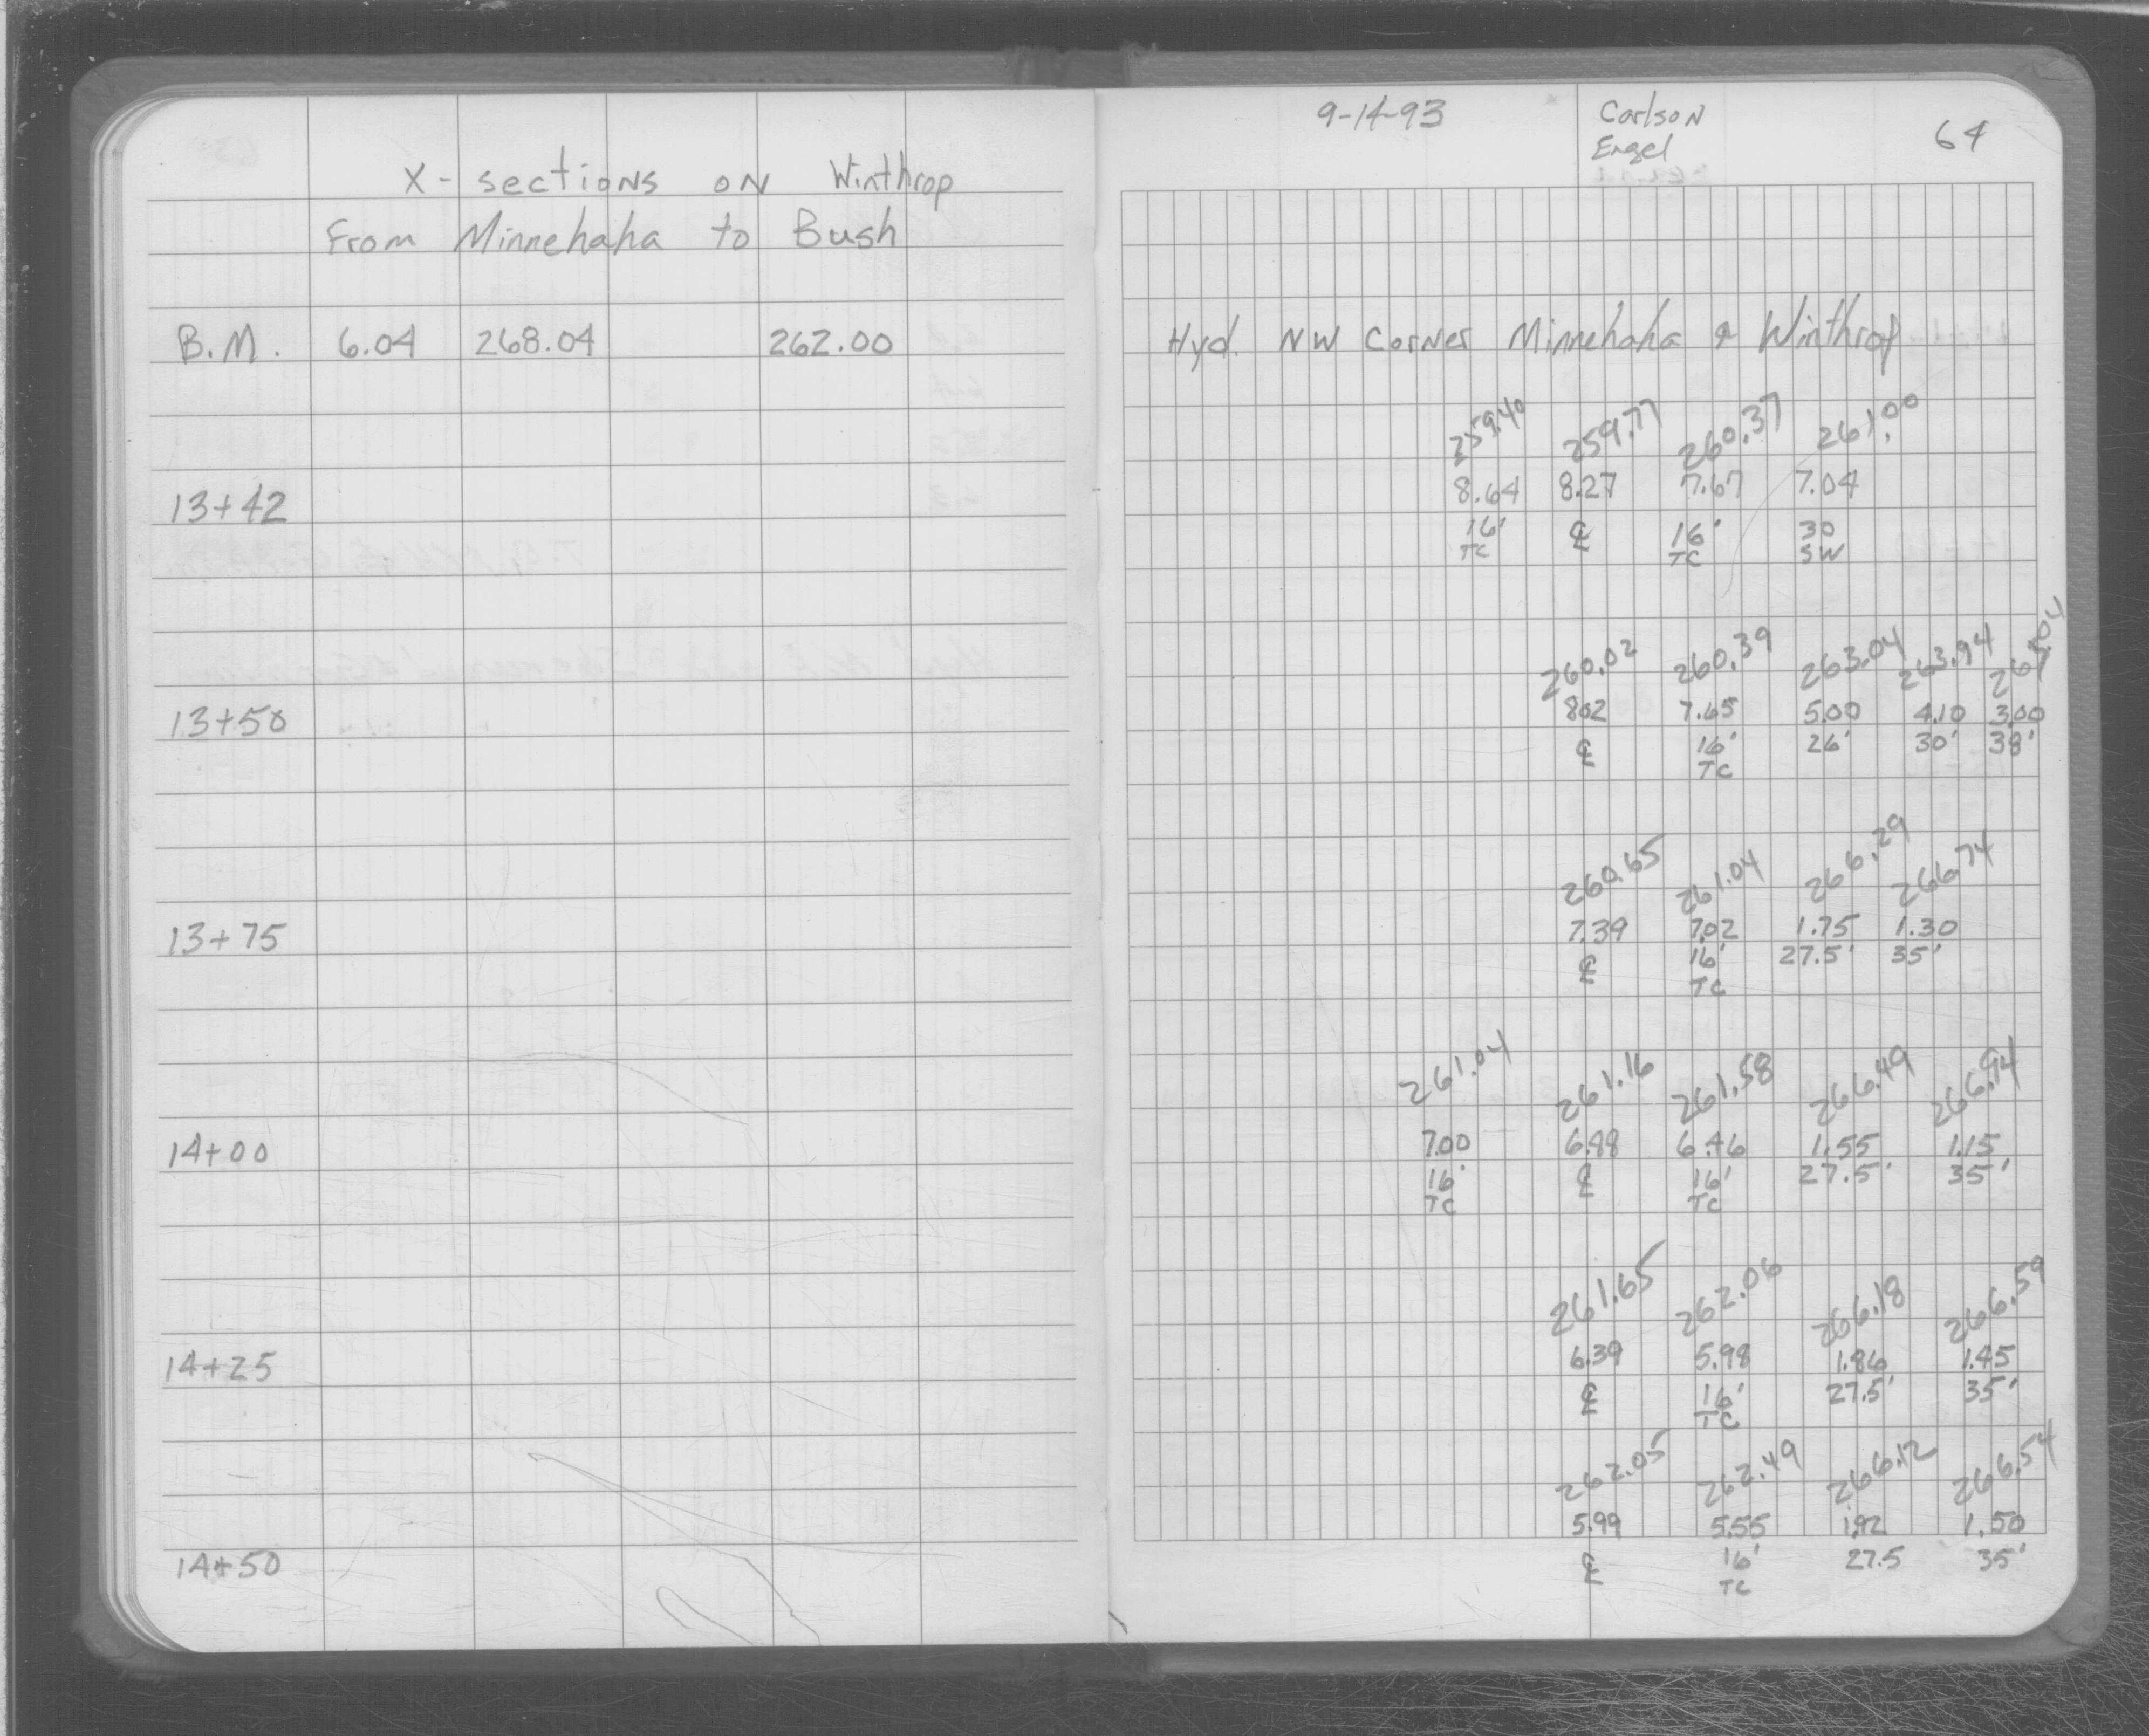 X - sections on Winthrop
From Minnehaha to Bush
B.M. 6.04 268.04 262.00
13+42
13+50
13+75
14+00
14+25
14+50
9-14-93 Carlson 64
Engel
Hyd. NW Corner Minnehaha & Winthrop
259.40 259.77 260.37 261.00
8.64 8.27 7.67 7.04
16' ℄ 16' 30
TC TC SW
260.02 260.39 263.04 263.94
8.02 7.65 5.00 4.10 3.00
℄ 16' 26' 30' 38'
TC
260.65 261.04 266.29 266.74
7.39 7.02 1.75 1.30
℄ 16' 27.5' 35'
TC
261.04 261.16 261.58 266.49
7.00 6.88 6.46 1.55 1.15
16' ℄ 16' 27.5' 35'
TC TC
261.65 262.06 266.18 266.59
6.39 5.98 1.86 1.45
℄ 16' 27.5' 35'
TC
262.05 262.49 266.12 266.54
5.99 5.55 1.92 1.50
℄ 16' 27.5 35'
TC